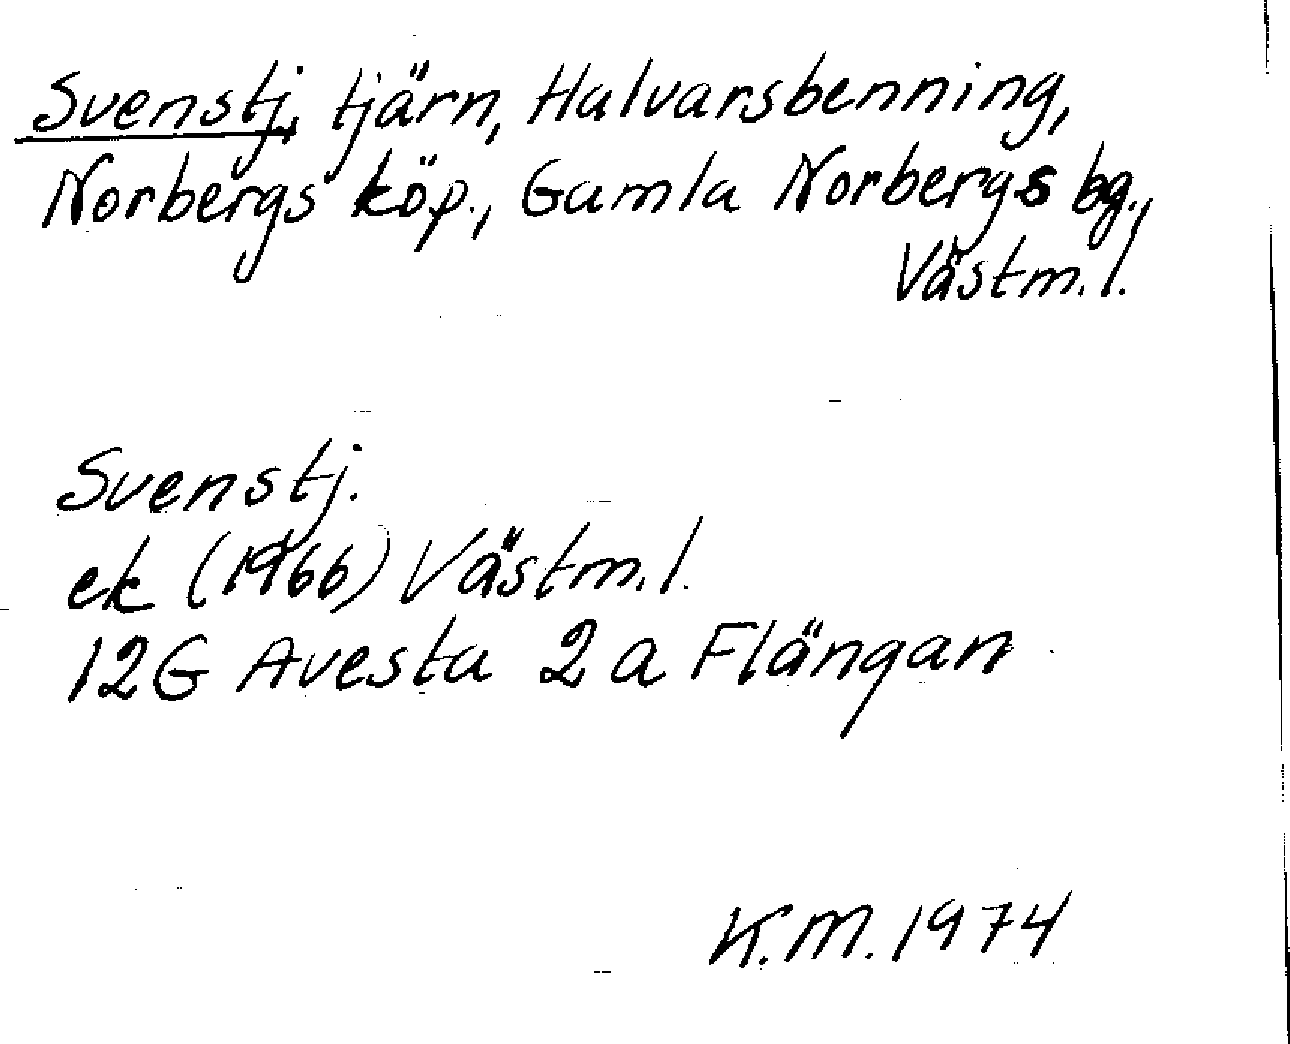 Svenstj., tjärn, Halvarsbenning,
Norbergs köp., Gamla Norbergs bg.,
Västm. l.
Svenstj.
ek (1966) Västm. l.
12G Avesta 2a Flängan
K.M. 1974